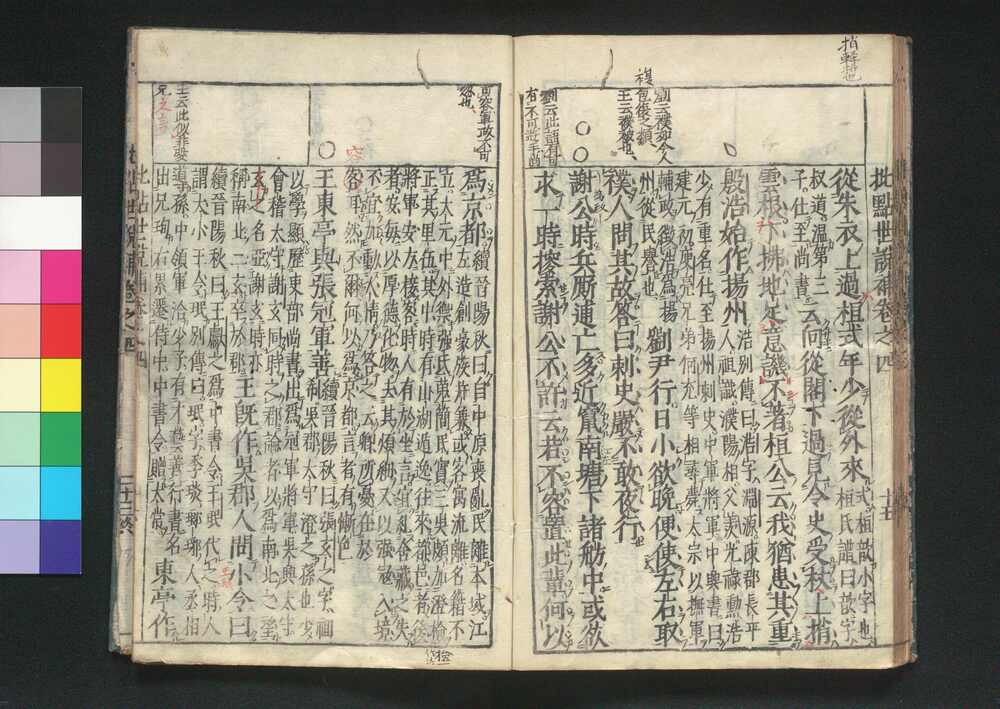 捎輕也
批點世說補卷之四　十五
從朱衣上過桓式年少從外來式桓歆小字也
桓氏譜曰歆字
叔道溫第三
子仕至尚書云向從閣下過見令史受杖上捎
雲根下拂地足意譏不著桓公云我猶患其重
殷浩始作揚州浩別傳曰浩字淵源陳郡長平
人祖識濮陽相父羨光祿勳浩
少有重名仕至揚州刺史中軍將軍中興書曰
建元初庾亮兄弟何充等相尋薨太宗以撫軍
輔政徵浩為揚
州從民譽也劉尹行日小欲晚便使左右取
襆人問其故答曰刺史嚴不敢夜行
謝公時兵廝逋亡多近竄南塘下諸舫中或欲
求一時搜索謝公不許云若不容置此輩何以
為京都續晉陽秋曰自中原喪亂民離本域江
左造創豪族并兼或客寓流離名籍不
立太元中外禦强氐蒐簡民實三吳頗加澄檢
正其里伍其中時有山湖遁逸往來都邑者後
將軍安方接客時人有於坐言宜糺舍藏之失
者安每以厚德化物去其煩細又以强寇入境
不宜加動人情乃答之云卿所憂在於
客耳然不爾何以為京都言者有慚色
王東亭與張冠軍善續晉陽秋曰張玄之字祖
希吳郡太守澄之孫也少
以學顯歷吏部尚書出為冠軍將軍吳興太守
會稽太守謝玄同時之郡論者以為南北之望
玄之名亞謝玄時亦
稱南北二玄卒於郡王既作吳郡人問小令曰
續晉陽秋曰王獻之為中書令王珉代之時人
謂大小王令珉別傳曰珉字季琰琅琊人丞相
導孫中領軍洽少子有才藝善行書名
出兄珣右累遷侍中中書令贈太常東亭作